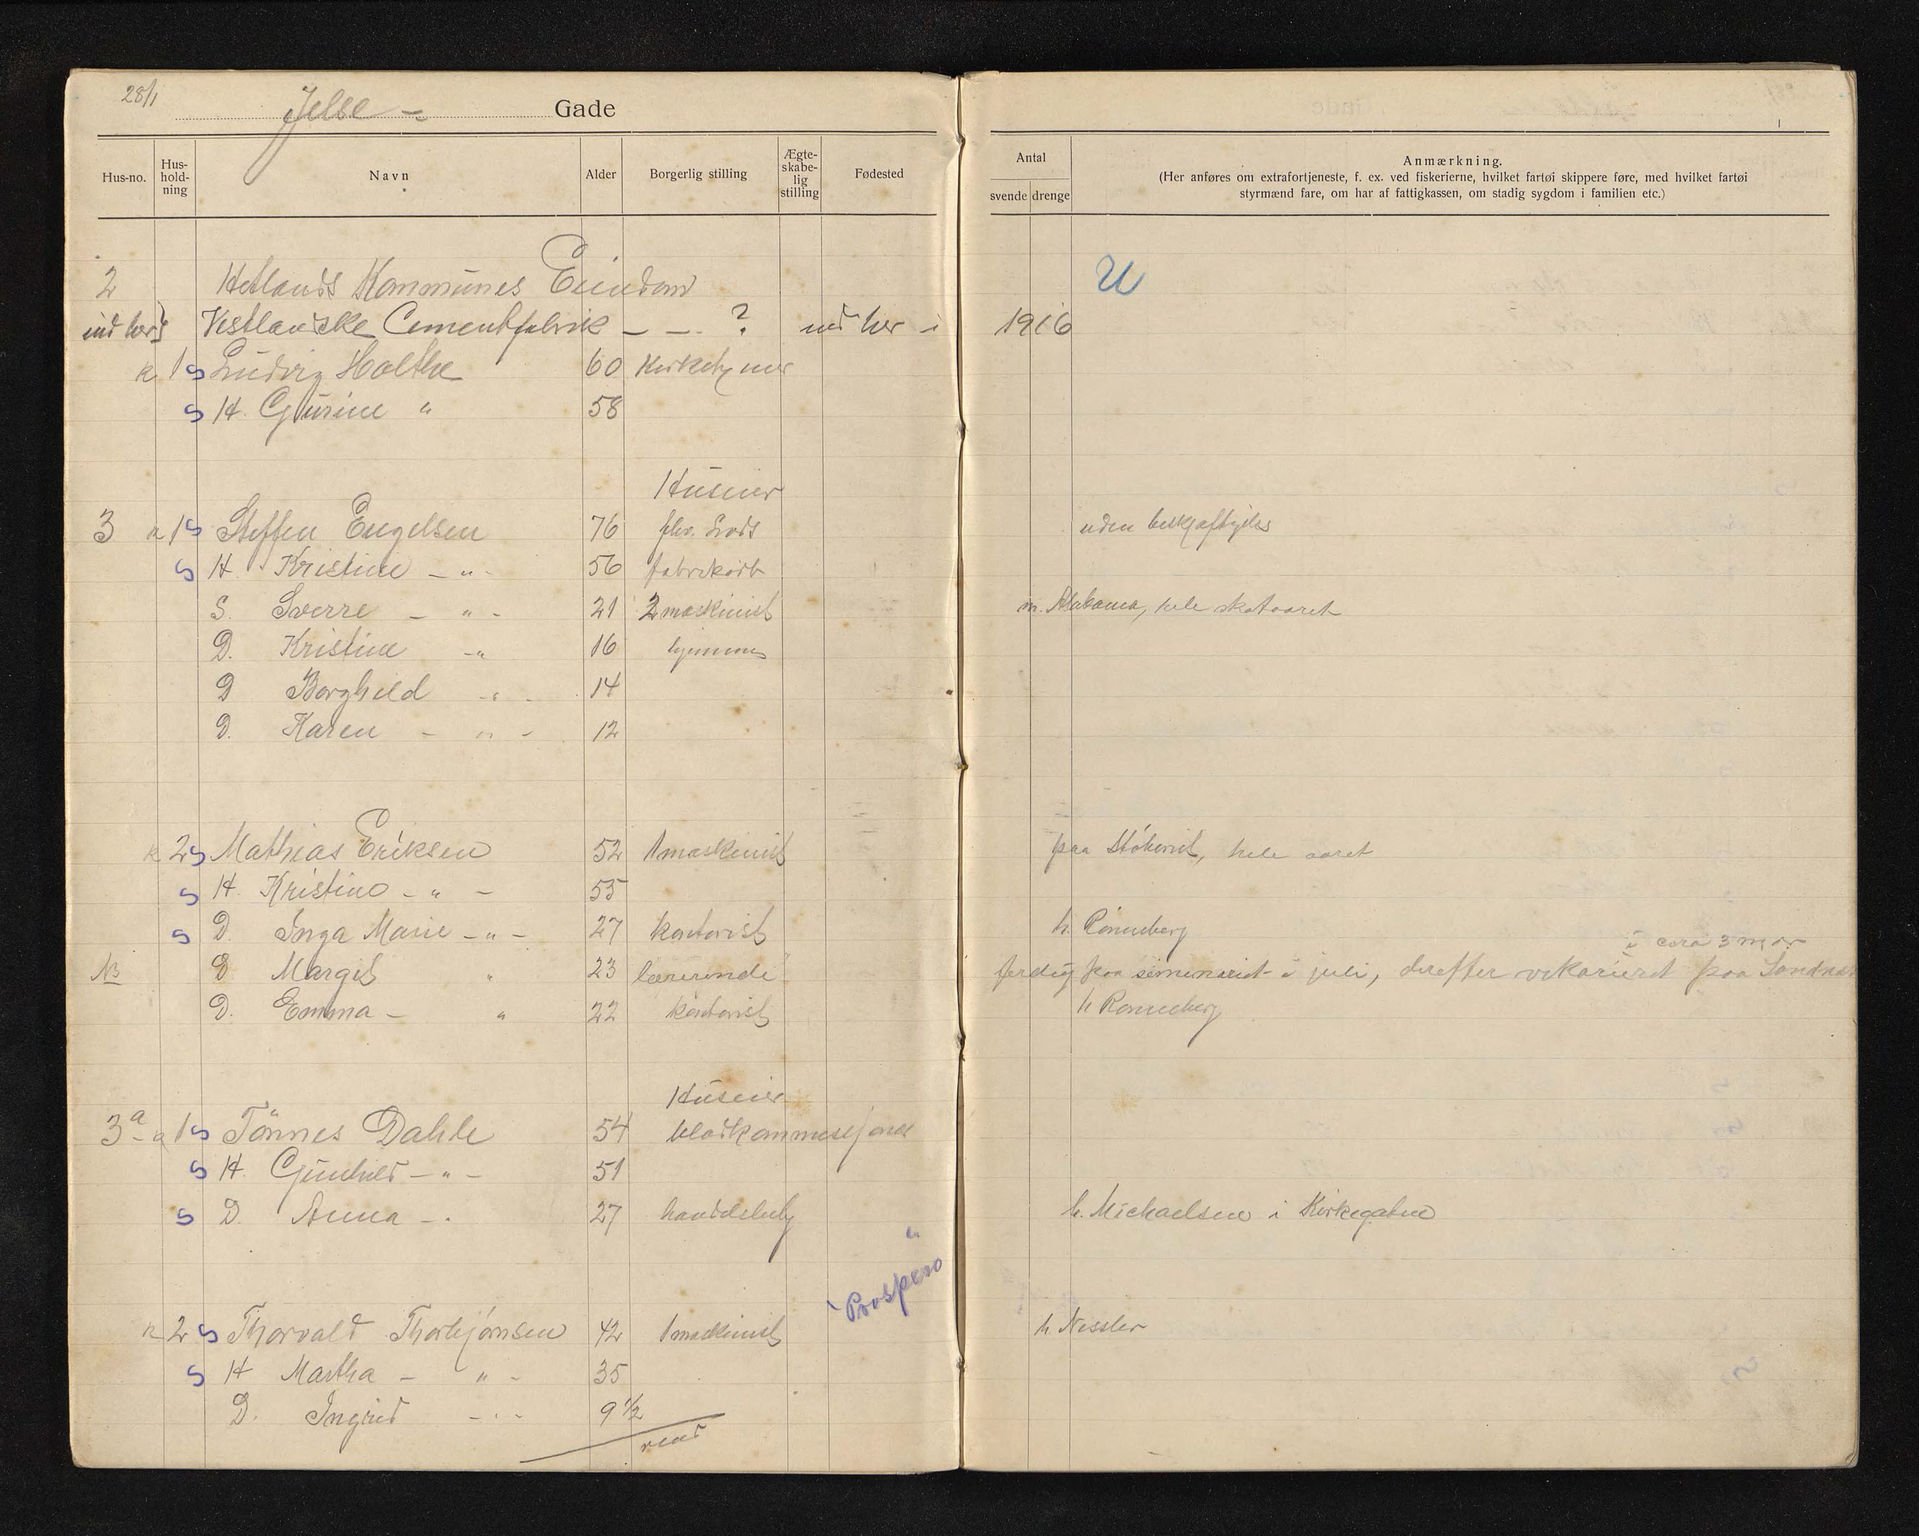 28/1
Jelse - Gade
Hus-no. Hus-hold-ning Navn Alder Borgerlig stilling Ægte-skabe-lig stilling Fødested Antal svende drenge Anmærkning.
(Her anføres om extrafortjeneste, f. ex. ved fiskerierne, hvilket fartøi skippere føre, med hvilket fartøi
styrmænd fare, om har af fattigkassen, om stadig sygdom i familien etc.)
2 Hetlands Kommunes Eiendom U
ind her Vestlandske Cementfabrik - - ? ind her i 1916
1 S Ludvig Holthe 60 Kirketjener
S H. Gurine " 58
Huseier
3 1 S Steffen Engelsen 76 fhv. Lods uden beskjæftigelse
S H Kristine - " - 56 fabrikarb
S. Sverre - " - 21 2 maskinist m. Alabama, hele skataaret
D. Kristine - " 16 hjemme
D Borghild - " - 14
D. Karen - " - 12
2 S Mathias Eriksen 52 1 maskinist paa Støkevid, hele aaret
S H. Kristine - " - 55
S D. Inga Marie - " - 27 kontorist h. Rönneberg
i cira 3 mdr
NB D Margit " 23 lærerinde ferdig paa seminariet i juli, derefter vikarieret paa Sandnes
D. Emma - " 22 kontorist h Ronneberg
Huseier
3a 1 S Tönnes Dahle 54
S H. Gunhild - " - 51
S D. Anna - " 27 handelsbetj h. Michaelsen i Kirkegaten
"Prospero"
2 S Thorvald Thorbjørnsen 42 1 maskinist h Nissler
S H Martha - " - 35
D. Ingrid - " - 9 1/2
vend